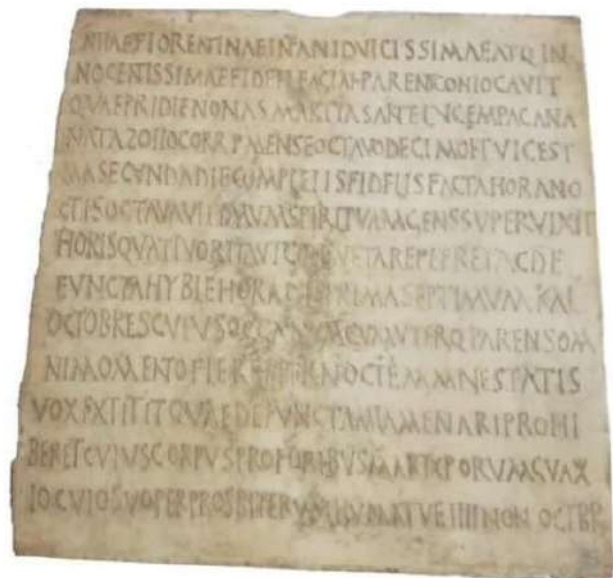 FLORENTINAE INFANTI DVLCISSIMAE ATQ IN
NOCENTISSIMAE FIDELI FACTAE PARENS CONLOCAVIT
QVAE PRIDIE NONAS MARTIAS ANTE LVCEM PAGANA
NATA ZOILO CORR P MENSE OCTAVO DECIMO ET VICES
MA SECVNDA DIE COMPLETIS FIDELIS FACTA HORA NO
CTIS OCTAVA VLTIMVM SPIRITVM AGENS SVPERVIXIT
HORIS QVATTVOR ITA VT REPETERET AC DE
FVNCTA HYBLE HORA PRIMA SEPTIMVM KAL
OCTOBRES CVIVS CVM VTERQ PARENS OM
NI MOMENTO NOCTEM
VOX EXTITIT QVAE DEFVNCTAM PROHI
BERET CVIVS CORPVS PRO FORIBVS
LOCVLO SVO PER PROSBITERVM IIII NON OCTBR